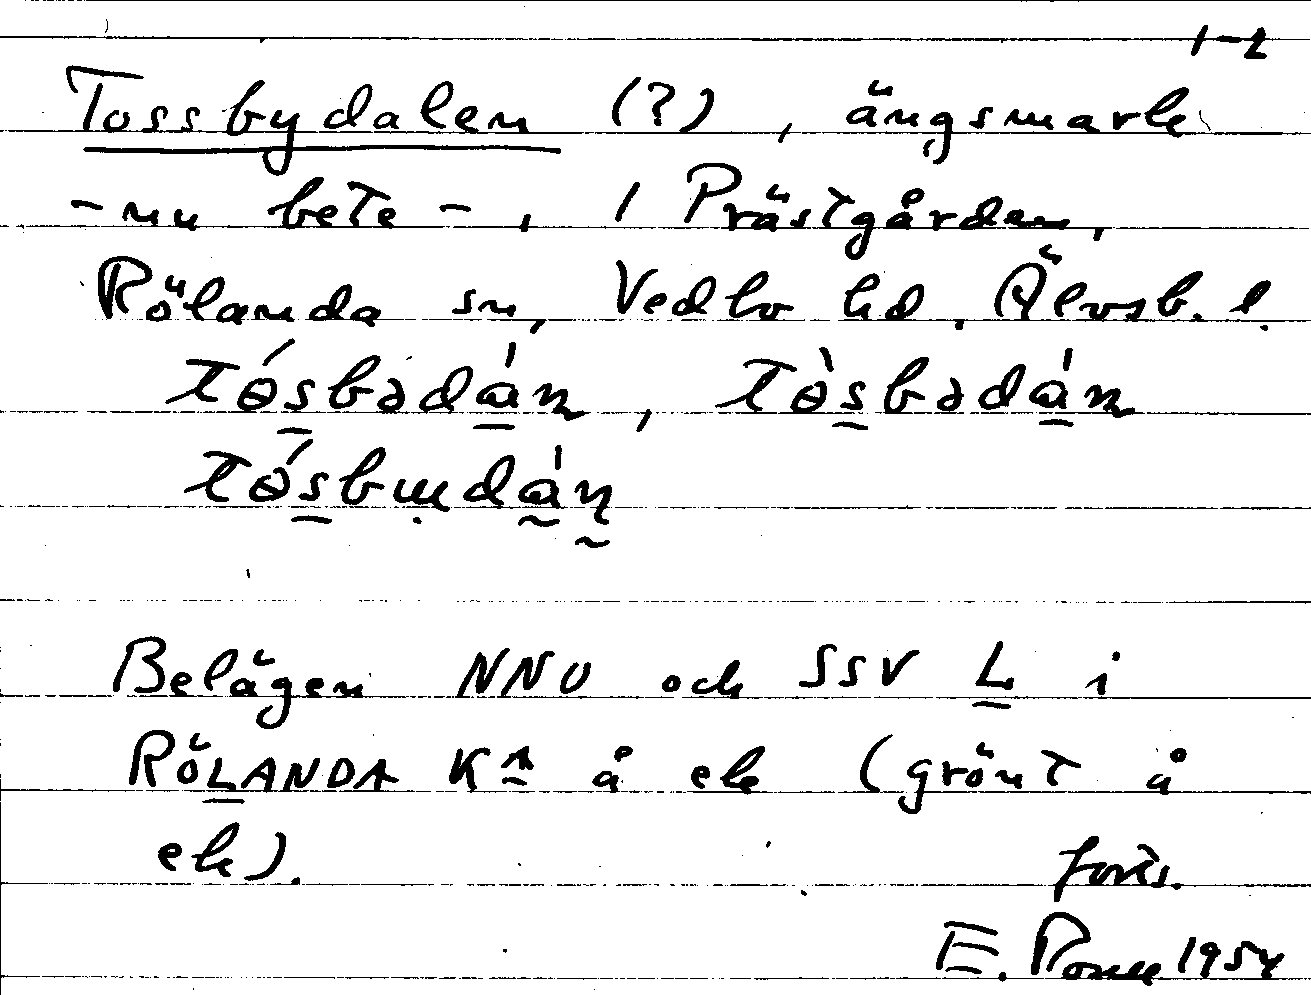 1-2
Tossbydalen (?), ängsmark
- nu bete -, 1 Prästgården,
Rölanda sn, Vedbo hd, Älvsb. l.
tósbədán, tòsbədán
Belägen NNO och SSV L i
RÖLANDA KA å ek (grönt å
ek).
forts.
E. 1954